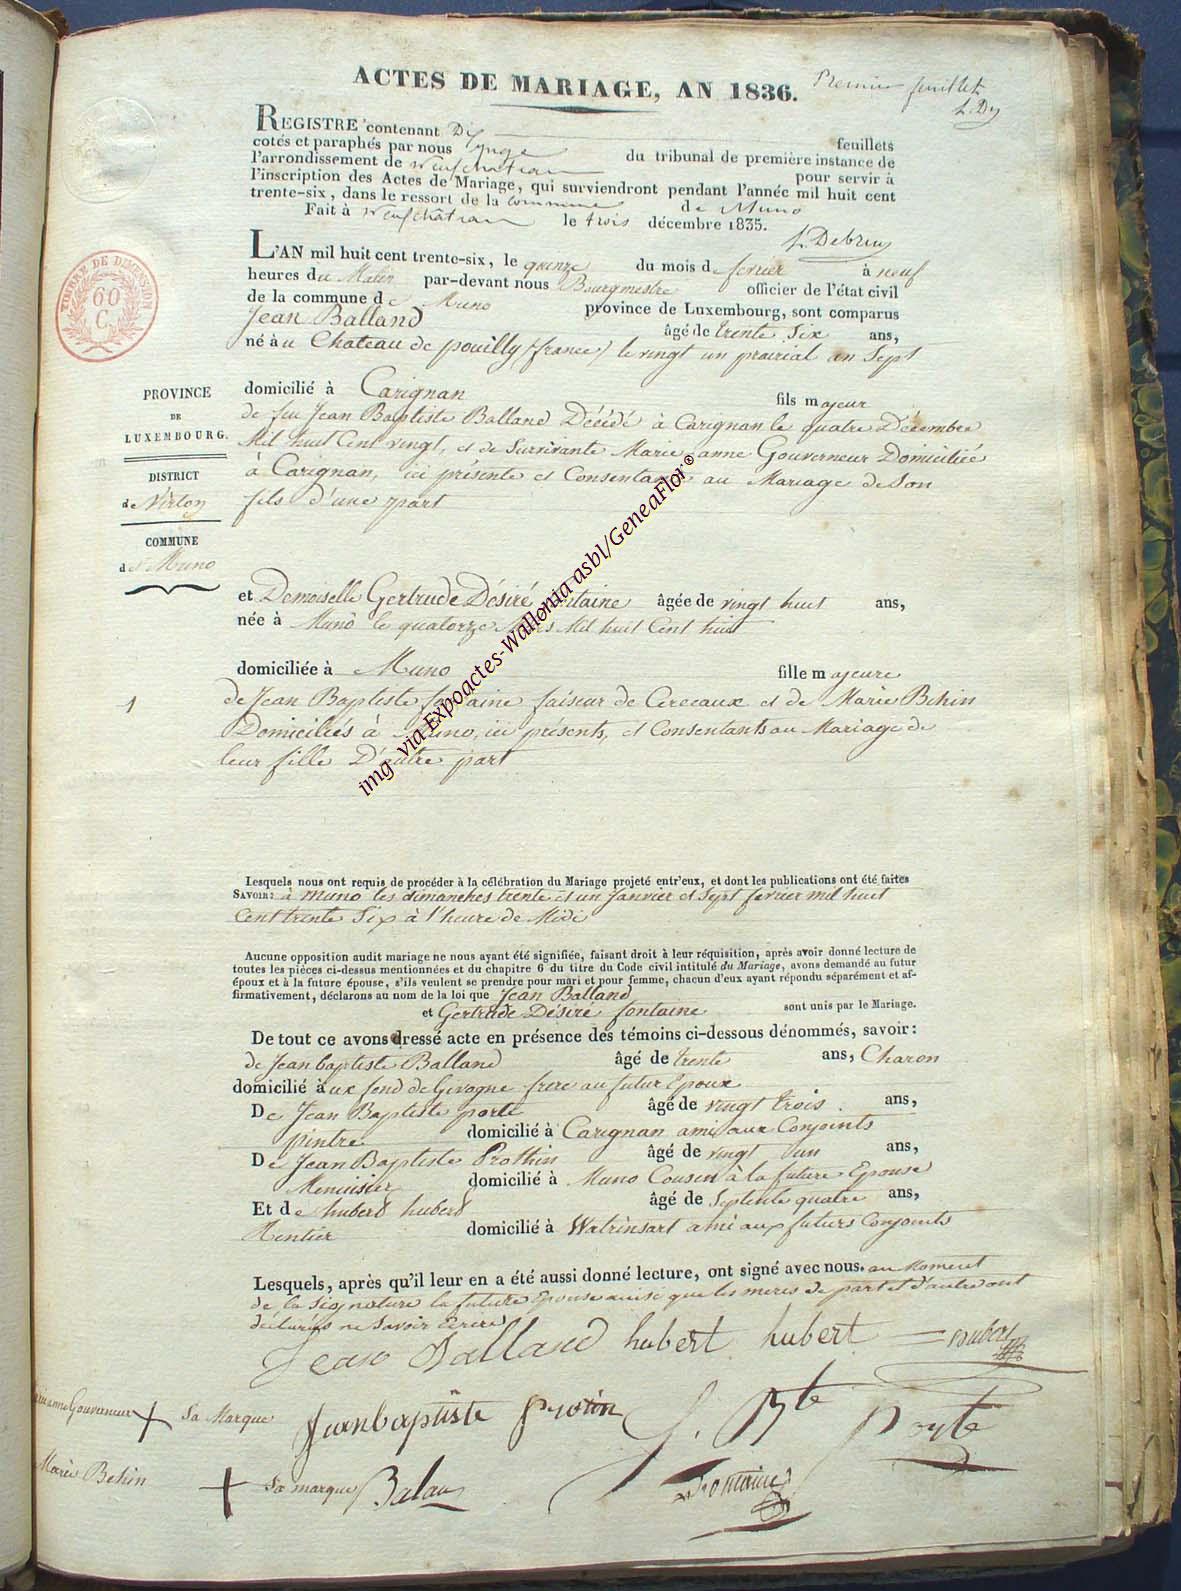 ACTES DE MARIAGE, AN 1836.
Premier feuillet
REGISTRE contenant Di feuillets
cotés et paraphés par nous juge du tribunal de première instance de
l'arrondissement de neufchateau pour servir à
l'inscription des Actes de Mariage, qui surviendront pendant l'année mil huit cent
trente-six, dans le ressort de la commune de Muno
Fait à neufchateau le trois décembre 1835.
L'AN mil huit cent trente-six, le quinze du mois de fevrier à neuf
heures du Matin par-devant nous Bourgmestre officier de l'état civil
de la commune de Muno province de Luxembourg, sont comparus
Jean Balland âgé de trente Six ans,
né au Chateau de pouilly (france) le vingt un prairial an Sept
TIMBRE DE DIMENSION
60
C.
PROVINCE
DE
LUXEMBOURG.
DISTRICT
de Virton
COMMUNE
de Muno
domicilié à Carignan fils majeur
de feu Jean Baptiste Balland Décédé à Carignan le quatre Décembre
Mil huit Cent vingt, et de Survivante Marie anne Gouverneur Domiciliée
à Carignan, ici présente et Consentante au Mariage de Son
fils d'une part
et Demoiselle Gertrude Désiré fontaine âgée de vingt huit ans,
née à Muno le quatorze Mars Mil huit Cent huit
domiciliée à Muno fille majeure
1
de Jean Baptiste fontaine faiseur de Cerceaux et de Marie Behin
Domiciliés à Muno, ici présents, et Consentants au Mariage de
leur fille D'autre part
img via Expoactes-Wallonia asbl/GeneaFlor©
Lesquels nous ont requis de procéder à la célébration du Mariage projeté entr'eux, et dont les publications ont été faites
SAVOIR: à Muno les dimanches trente et un Janvier et Sept fevrier mil huit
Cent trente Six à l'heure de Midi
Aucune opposition audit mariage ne nous ayant été signifiée, faisant droit à leur réquisition, après avoir donné lecture de
toutes les pièces ci-dessus mentionnées et du chapitre 6 du titre du Code civil intitulé du Mariage, avons demandé au futur
époux et à la future épouse, s'ils veulent se prendre pour mari et pour femme, chacun d'eux ayant répondu séparément et af-
firmativement, déclarons au nom de la loi que Jean Balland
et Gertrude Désiré fontaine sont unis par le Mariage.
De tout ce avons dressé acte en présence des témoins ci-dessous dénommés, savoir:
de Jean baptiste Balland âgé de trente ans, Charon
domicilié aux fond de Givogne frere au futur Epoux
De Jean Baptiste porte âgé de vingt trois ans,
pintre domicilié à Carignan ami aux Conjoints
De Jean Baptiste Prothin âgé de vingt un ans,
Menuisier domicilié à Muno Cousin à la future Epouse
Et de hubert hubert âgé de Septente quatre ans,
Rentier domicilié à Watrinsart ami aux futurs Conjoints
Lesquels, après qu'il leur en a été aussi donné lecture, ont signé avec nous. au Moment
de la Signature la future Epouse ainsi que les meres de part et d'autre ont
déclarés ne Savoir Ecrire
Jean Balland hubert hubert
anne Gouverneur + Sa Marque Jeanbaptiste J. Bte Porte
Marie Behin + Sa marque Balan fontaine